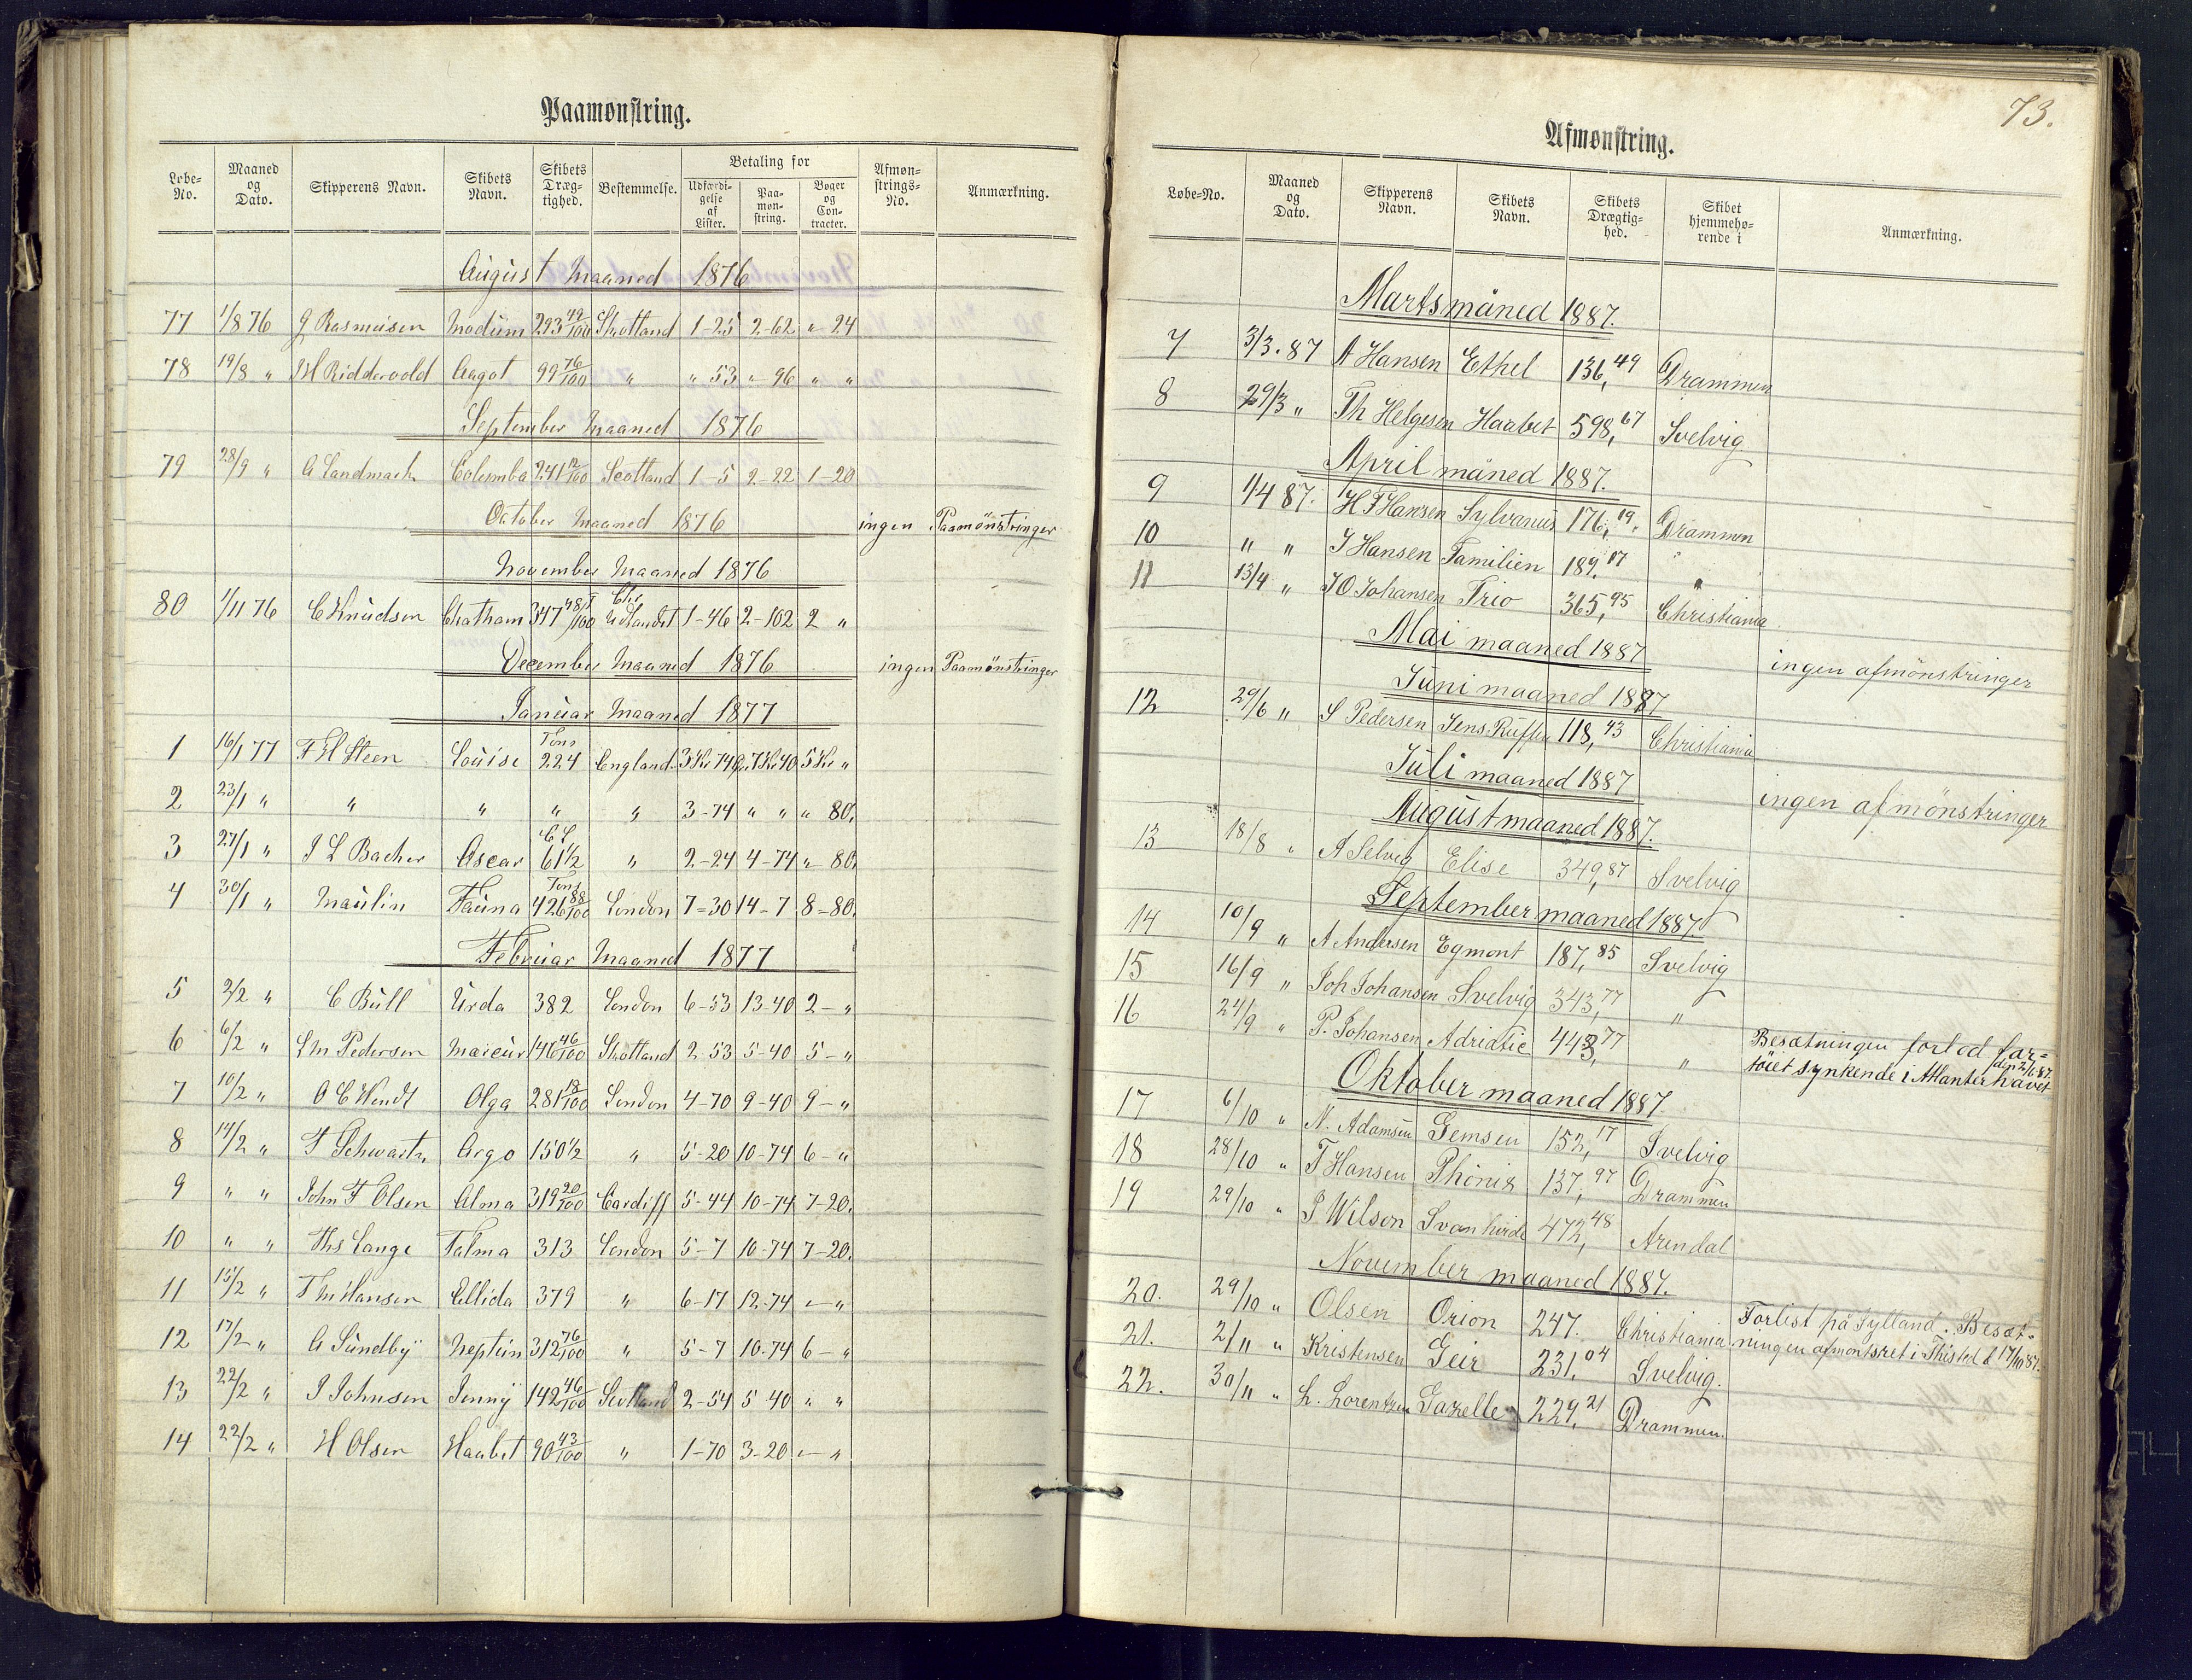 Paamønstring.
Løbe-No. | Maaned og Dato. | Skipperens Navn. | Skibets Navn. | Skibets Dræg-tighed. | Bestemmelse. | Betaling for | Udfærdi-gelse af Lister. | Paa-møn-string. | Bøger og Con-tracter. | Afmøn-strings-No. | Anmærkning.
August Maaned 1876
77 1/8 76 Rasmüsen Modüm 293 49/100 Skotland 1-25 2-62 " 24
78 19/8 " Riddervold Aagot 99 76/100 " " 53 " 96 " "
September Maaned 1876
79 28/9 " A Landmark Columba 241 12/100 Scotland 1-5 2-22 1-20
October Maaned 1876 ingen Paamönstringer
November Maaned 1876
80 1/11 76 C Knüdsen Chatham 347 48/100 Udlandet 1-46 2-102 2 "
December Maaned 1876 ingen Paamönstringer
Janüar Maaned 1877
1 16/1 77 F H Steen Loüise Tons 224 England 3 Kr 74 7 Kr 40 5 Kr "
2 23/1 " " " " " 3-74 " " " 80.
3 27/1 " J L Bacher Oscar C L 61 1/2 " 2-24 4-74 " 80.
4 30/1 " Maülin Faüna Tons 426 88/100 London 7-30 14-7 8-80.
Febrüar Maaned 1877
5 2/2 " C Büll Ürda 382 London 6-53 13-40 2-"
6 6/2 " L M Pedersen Marcür 146 46/100 Skotland 2 53 5-40 5-"
7 10/2 " O C Wendt Olga 281 18/100 London 4-70 9-40 9-"
8 14/2 " F Schwartz Argo 150 1/2 " 5-20 10-74 6-"
9 " " John F Olsen Alma 319 20/100 Cardiff 5-44 10-74 7-20.
10 " " Ths Lange Talma 313 London 5-7 10-74 7-20.
11 15/2 " Th Hansen Ellida 379 " 6-17 12-74 - "
12 17/2 " A Sündby Neptün 312 76/100 " 5-7 10-74 6-"
13 22/2 " J Johnsen Jenny 142 46/100 Scotland 2-54 5 40 " "
14 22/2 " H Olsen Haabet 90 43/100 " 1-70 3-20 - "
73.
Afmønstring.
Løbe-No. | Maaned og Dato. | Skipperens Navn. | Skibets Navn. | Skibets Drægtig-hed. | Skibet hjemmehø-rende i | Anmærkning.
Martsmåned 1887.
7 3/3. 87 A Hansen Ethel 136,49 Drammen
8 29/3 " Th Helgesen Haabet 598,67 Svelvig.
April måned 1887.
9 1/4 87. H F Hansen Sylvanüs 176,19. Drammen
10 " " J Hansen Familien 189.17 "
11 13/4 " J O Johansen Trio 365,95 Christiania
Mai maaned 1887 ingen afmönstringer
Jüni maaned 1887
12 29/6 " S Pedersen Jens Rüffen 118,43 Christiania
Jüli maaned 1887 ingen afmönstringer
Augüst maaned 1887.
13 18/8 " A Selvig Elise 349,87 Svelvig
September maaned 1887.
14 10/9 " A Andersen Egmont 187,85 Svelvig
15 16/9 " Joh Johansen Svelvig 343,77 "
16 24/9 " P. Johansen Adriatic 443,77 " Besætningen forlod far-
töiet synkende i Atlanterhavet
Oktober maaned 1887
17 6/10 " N. Adamsen Gemsen 152,17 Svelvig
18 28/10 " T Hansen Phönix 137,97 Drammen
19 29/10 " J Wilson Svanhvide 472,48 Arendal
November maaned 1887.
20. 29/10 " Olsen Orion 247. Christiania Forlist på Jylland. Besæt-
ningen afmönstret i Thisted d 17/10 87.
21. 2/11 " Kristensen Geir 231,04 Svelvig.
22. 30/11 " L. Lorentzen Gazelle 229,21 Drammen.